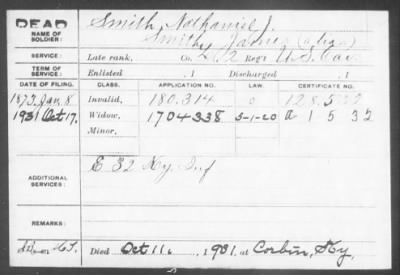 DEAD
NAME OF SOLDIER: Smith, Nathaniel J.
Smith, James (alias)
SERVICE: Late rank, Co. 2 Reg't U.S. Cav
TERM OF SERVICE: Enlisted , 1 Discharged , 1
DATE OF FILING. CLASS. APPLICATION NO. LAW. CERTIFICATE NO.
1873 Jan. 8 Invalid, 180.314
1931 Oct 17. Widow, 1704338 5-1-20 A 1 5 32
Minor,
ADDITIONAL SERVICES: E 32 Ky. Inf
REMARKS:
Died Oct 11, 1931, at Corbin, Ky.